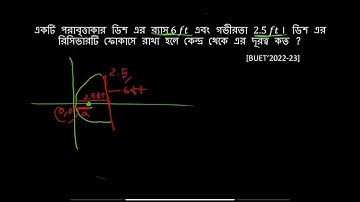 একটি পরাবৃত্তাকার ডিশ এর ব্যাস 6 ft এবং গভীরতা 2.5 ft। ডিশ এর
রিসিভারটি ফোকাসে রাখা হলে কেন্দ্র থেকে এর দূরত্ব কত ?
[BUET'2022-23]
2.5
2.5ft
6ft
(0,0)
a